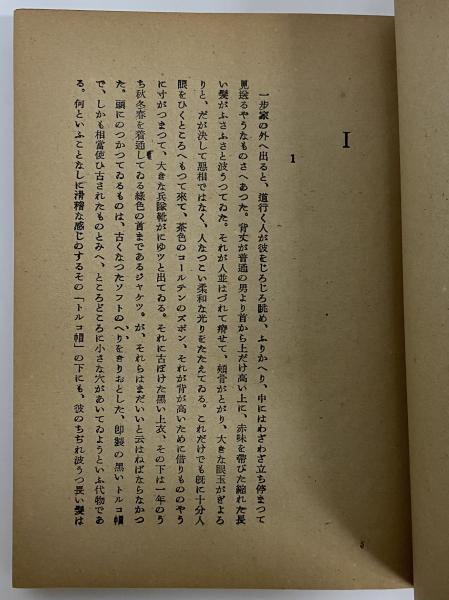 I
1
一步家の外へ出ると、道行く人が彼をじろじろ眺め、ふりかへり、中にはわざわざ立ち停まつて
見送るやうなものさへあつた。背丈が普通の男より首から上だけ高い上に、赤味を帶びた縮れた長
い髮がふさふさと波うつてゐた。それが人並はづれて瘠せて、頰骨がとがり、大きな眼玉がぎよろ
りと、だが決して惡相ではなく、人なつこい柔和な光りをたたえてゐる。これだけでも既に十分人
眼をひくところへもつて來て、茶色のコールテンのズボン、それが背が高いために借りもののやう
に寸がつまつて、大きな兵隊靴がにゆツと出てゐる。それに古ぼけた黑い上衣、その下は一年のう
ち秋冬春を着通してゐる綠色の首まであるジャケツ。が、それらはまだいいと云はねばならなかつ
た。頭にのつかつてゐるものは、古くなつたソフトのへりをきりおとした、卽製の黑いトルコ帽
で、しかも相當使ひ古されたものとみへ、ところどころに小さな穴があいてゐようといふ代物であ
る。何といふことなしに滑稽な感じのするその「トルコ帽」の下にも、彼のちぢれ波うつ長い髮は
5